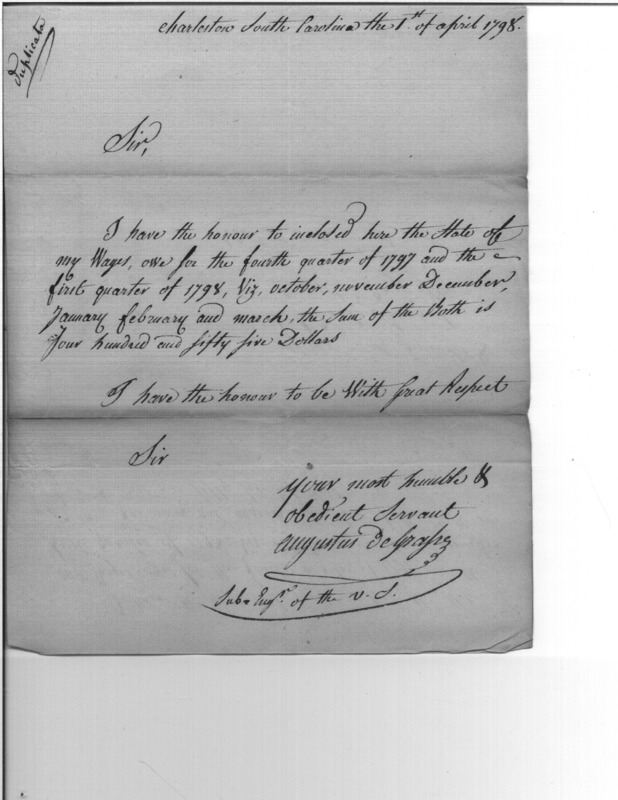 Duplicata
Charleston South Carolina the 1st of april 1798.
Sir,
I have the honour to inclosed here the State of
my Wages, owe for the fourth quarter of 1797 and the
first quarter of 1798, Viz, october, november December,
January february and march, the Sum of the Both is
four hundred and fifty five Dollars
I have the honour to be With Great Respect
Sir
your most humble &
obedient Servant
augustus De Grasse
Sub= Engr. of the U. S.